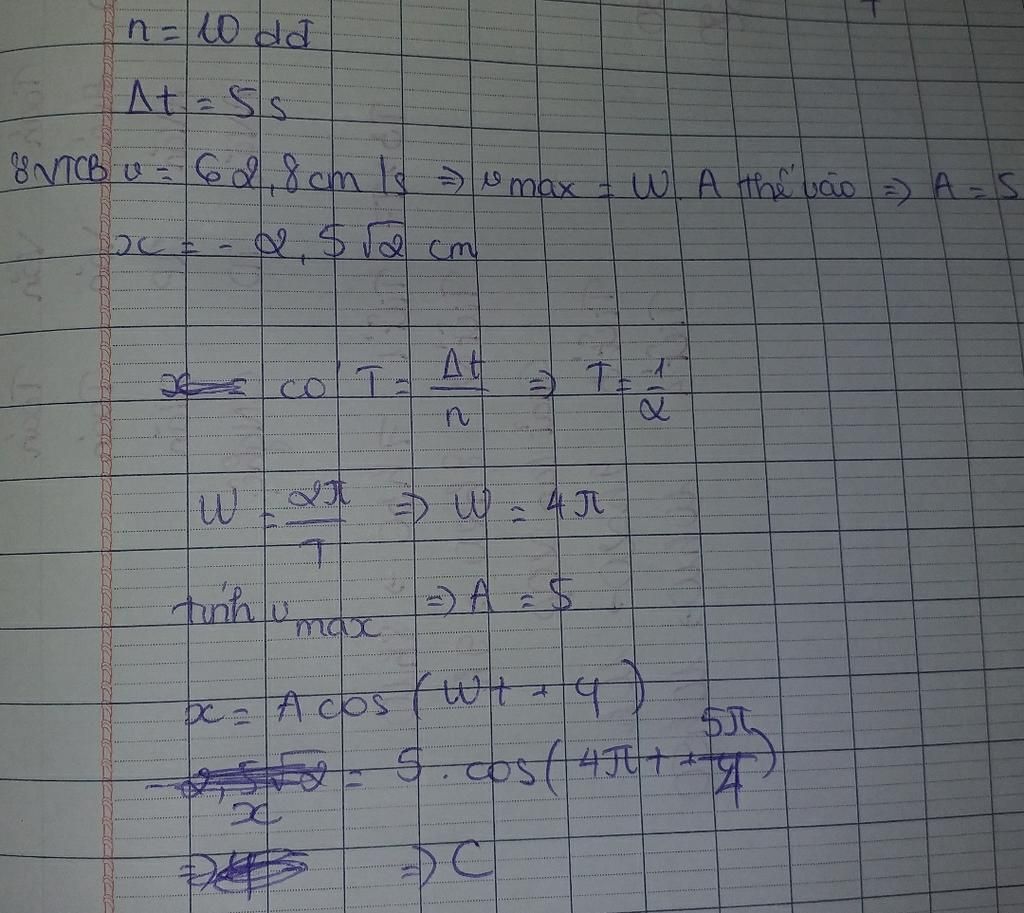 n = 10 dđ
Δt = 5s
ở VTCB v = 62,8cm/s ⇒ vmax = W.A thế vào ⇒ A = 5
x = - 2,5√2 cm
có T = Δt/n ⇒ T = 1/2
W = 2π/T ⇒ W = 4π
tính vmax ⇒ A = 5
x = A cos (Wt + φ)
x = 5 . cos( 4πt + 5π/4 )
⇒ C